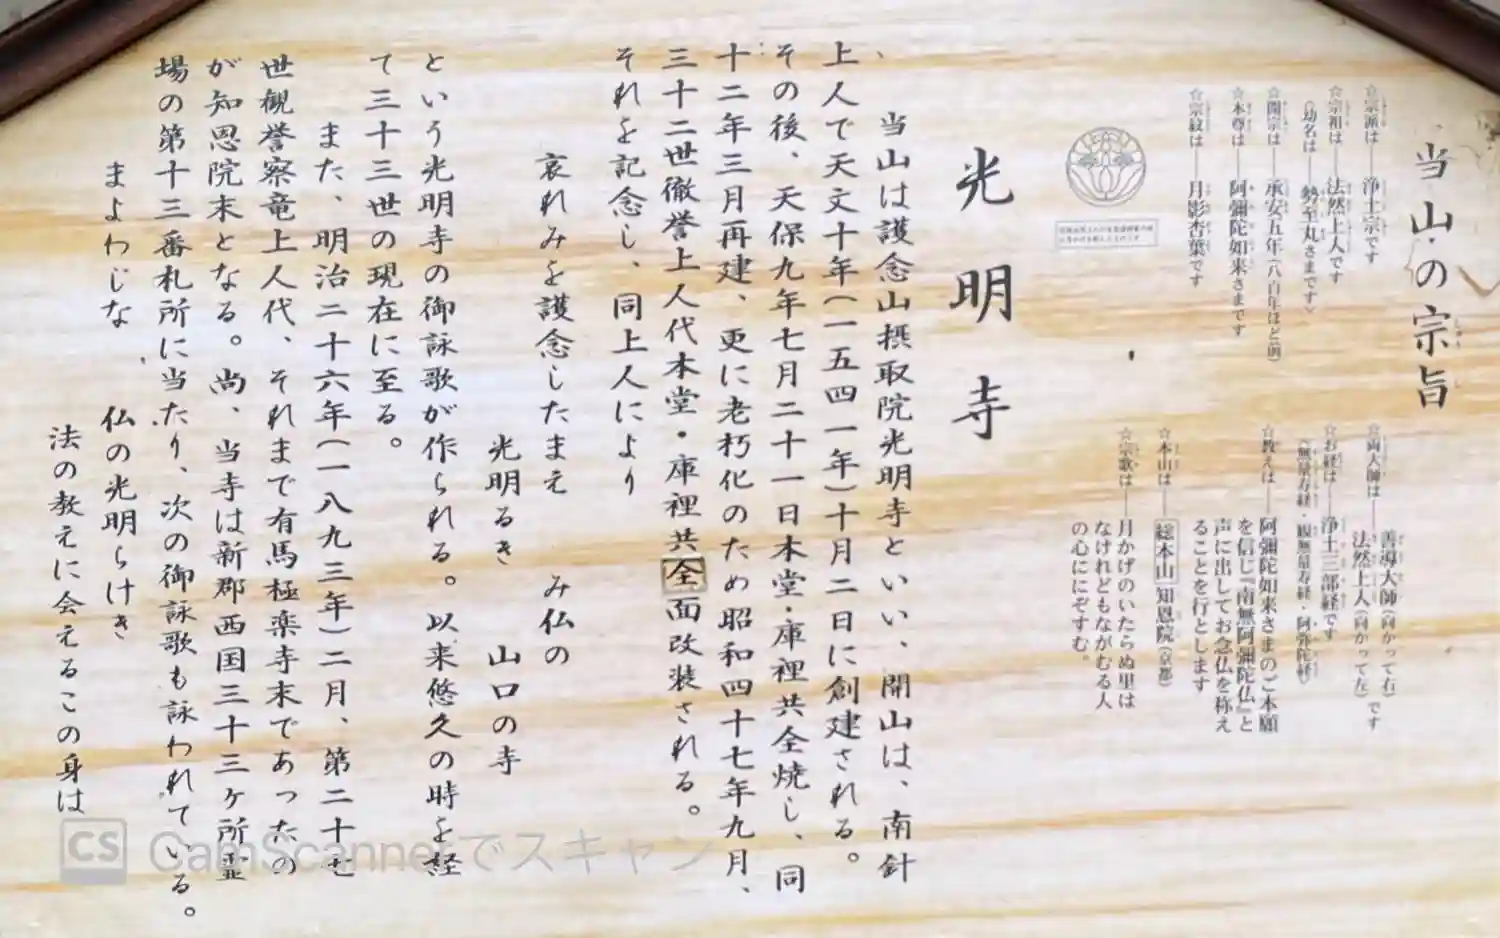 当山の宗旨
☆宗派は――浄土宗です
☆宗祖は――法然上人です
(幼名は――勢至丸さまです)
☆開宗は――承安五年(八百年ほど前)
☆本尊は――阿彌陀如来さまです
☆宗紋は――月影杏葉です
☆両大師は――善導大師(向かって右)
法然上人(向かって左)です
☆お経は――浄土三部経です
(無量寿経・観無量寿経・阿弥陀経)
☆教えは――阿彌陀如来さまのご本願
を信じ『南無阿彌陀仏』と
声に出してお念仏を称え
ることを行とします
☆本山は――総本山 知恩院(京都)
☆宗歌は――月かげのいたらぬ里は
なけれどもながむる人
の心ににぞすむ。
光明寺
当山は護念山摂取院光明寺といい、開山は、南針
上人で天文十年(一五四一年)十月二日に創建される。
その後、天保九年七月二十一日本堂・庫裡共全焼し、同
十二年三月再建、更に老朽化のため昭和四十七年九月、
三十二世徹誉上人代本堂・庫裡共全面改装される。
それを記念し、同上人により
哀れみを護念したまえ み仏の
光明るき 山口の寺
という光明寺の御詠歌が作られる。以来悠久の時を経
て三十三世の現在に至る。
また、明治二十六年(一八九三年)二月、第二十七
世観誉察竜上人代、それまで有馬極楽寺末であったの
が知恩院末となる。尚、当寺は新郡西国三十三ヶ所霊
場の第十三番札所に当たり、次の御詠歌も詠われている。
まよわじな 仏の光明らけき
法の教えに会えるこの身は
CS CamScannerでスキャン